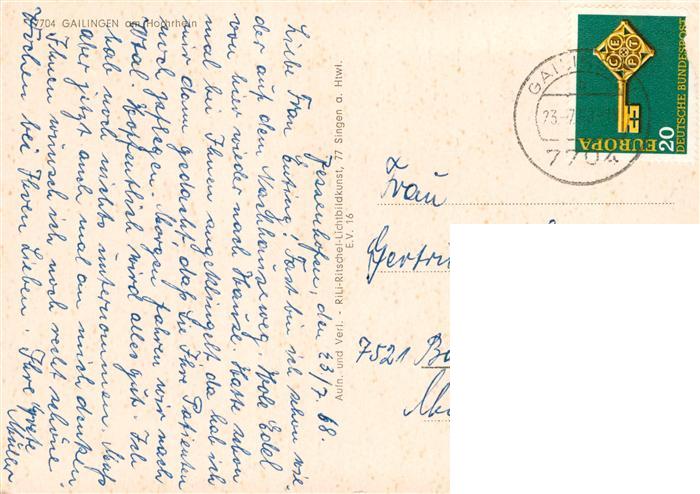 7704 GAILINGEN am Hochrhein
Jesenhofen, den 23/7.68.
Liebe Frau Enting! Fast bin ich schon wie-
der auf dem Nachhauseweg. Hole Edel
von hier wieder nach Hause. Hatte schon
mal bei Ihnen angeklingelt da hab ich
mir dann gedacht, daß Sie Ihre Patienten
noch pflegen. Morgen fahren wir nach
Hoffentlich wird alles gut. Ich
hab noch nichts unternommen. Muß
aber jetzt auch mal an mich denken
Ihnen wünsch ich noch recht schöne
Wochen bei Ihren Lieben. Ihre Grete
Müller
Aufn. und Verl. - RiLi-Ritschel-Lichtbildkunst, 77 Singen a. Htwl.
E.V. 16
CEPT
EUROPA 20
DEUTSCHE BUNDESPOST
GAILI
23.-7.
7704
Frau
Gertru
7521 B